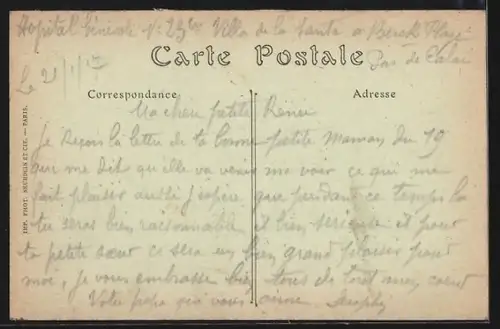 Hopital Générale N. 23 bis Villa de la Santé a Berck Plage
Pas de Calai
Carte Postale
Le 21/1/17
Correspondance
Adresse
Ma chere petite Renée
Je reçois la lettre de ta bonne petite maman du 19
qui me dit qu'elle va venir me voir ce qui me
fait plaisir aussi j'espère que pendant ce temps la
tu seras bien raisonnable et bien serieuse et pour
ta petite sœur ce sera un bien grand plaisir pour
moi, je vous embrasse bien tous de tout mon cœur
Votre papa qui vous aime
IMP. PHOT. NEURDEIN ET CIE. — PARIS.